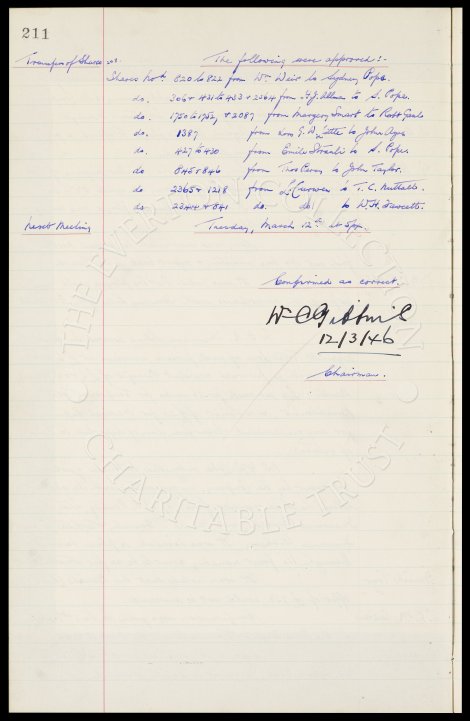 211
Transfer of Shares
The following were approved:-
Shares Nos. 820 to 822 from Wm Weir to Sydney Pope.
do. 306 & 431 to 433 & 2364 from to S. Pope.
do. 1750 to 1752, & 2087 from Margery Smart to Robt
do. 1387 from to John
do. 427 to 430 from Emile to S. Pope.
do. 845 & 846 from Thos to John Taylor.
do 2365 & 1218 from Curwen to T. C. Nuttall.
do 2344 & 841 do. do. to W. H. Fawcett.
Next Meeting Tuesday, March 12th at 5pm.
Confirmed as correct.
W C
12/3/46
Chairman.
THE EVERTON COLLECTION
CHARITABLE TRUST